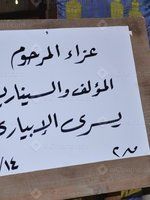 عزاء المرحوم
المؤلف والسينار
يسرى الإبيارى
١٤/